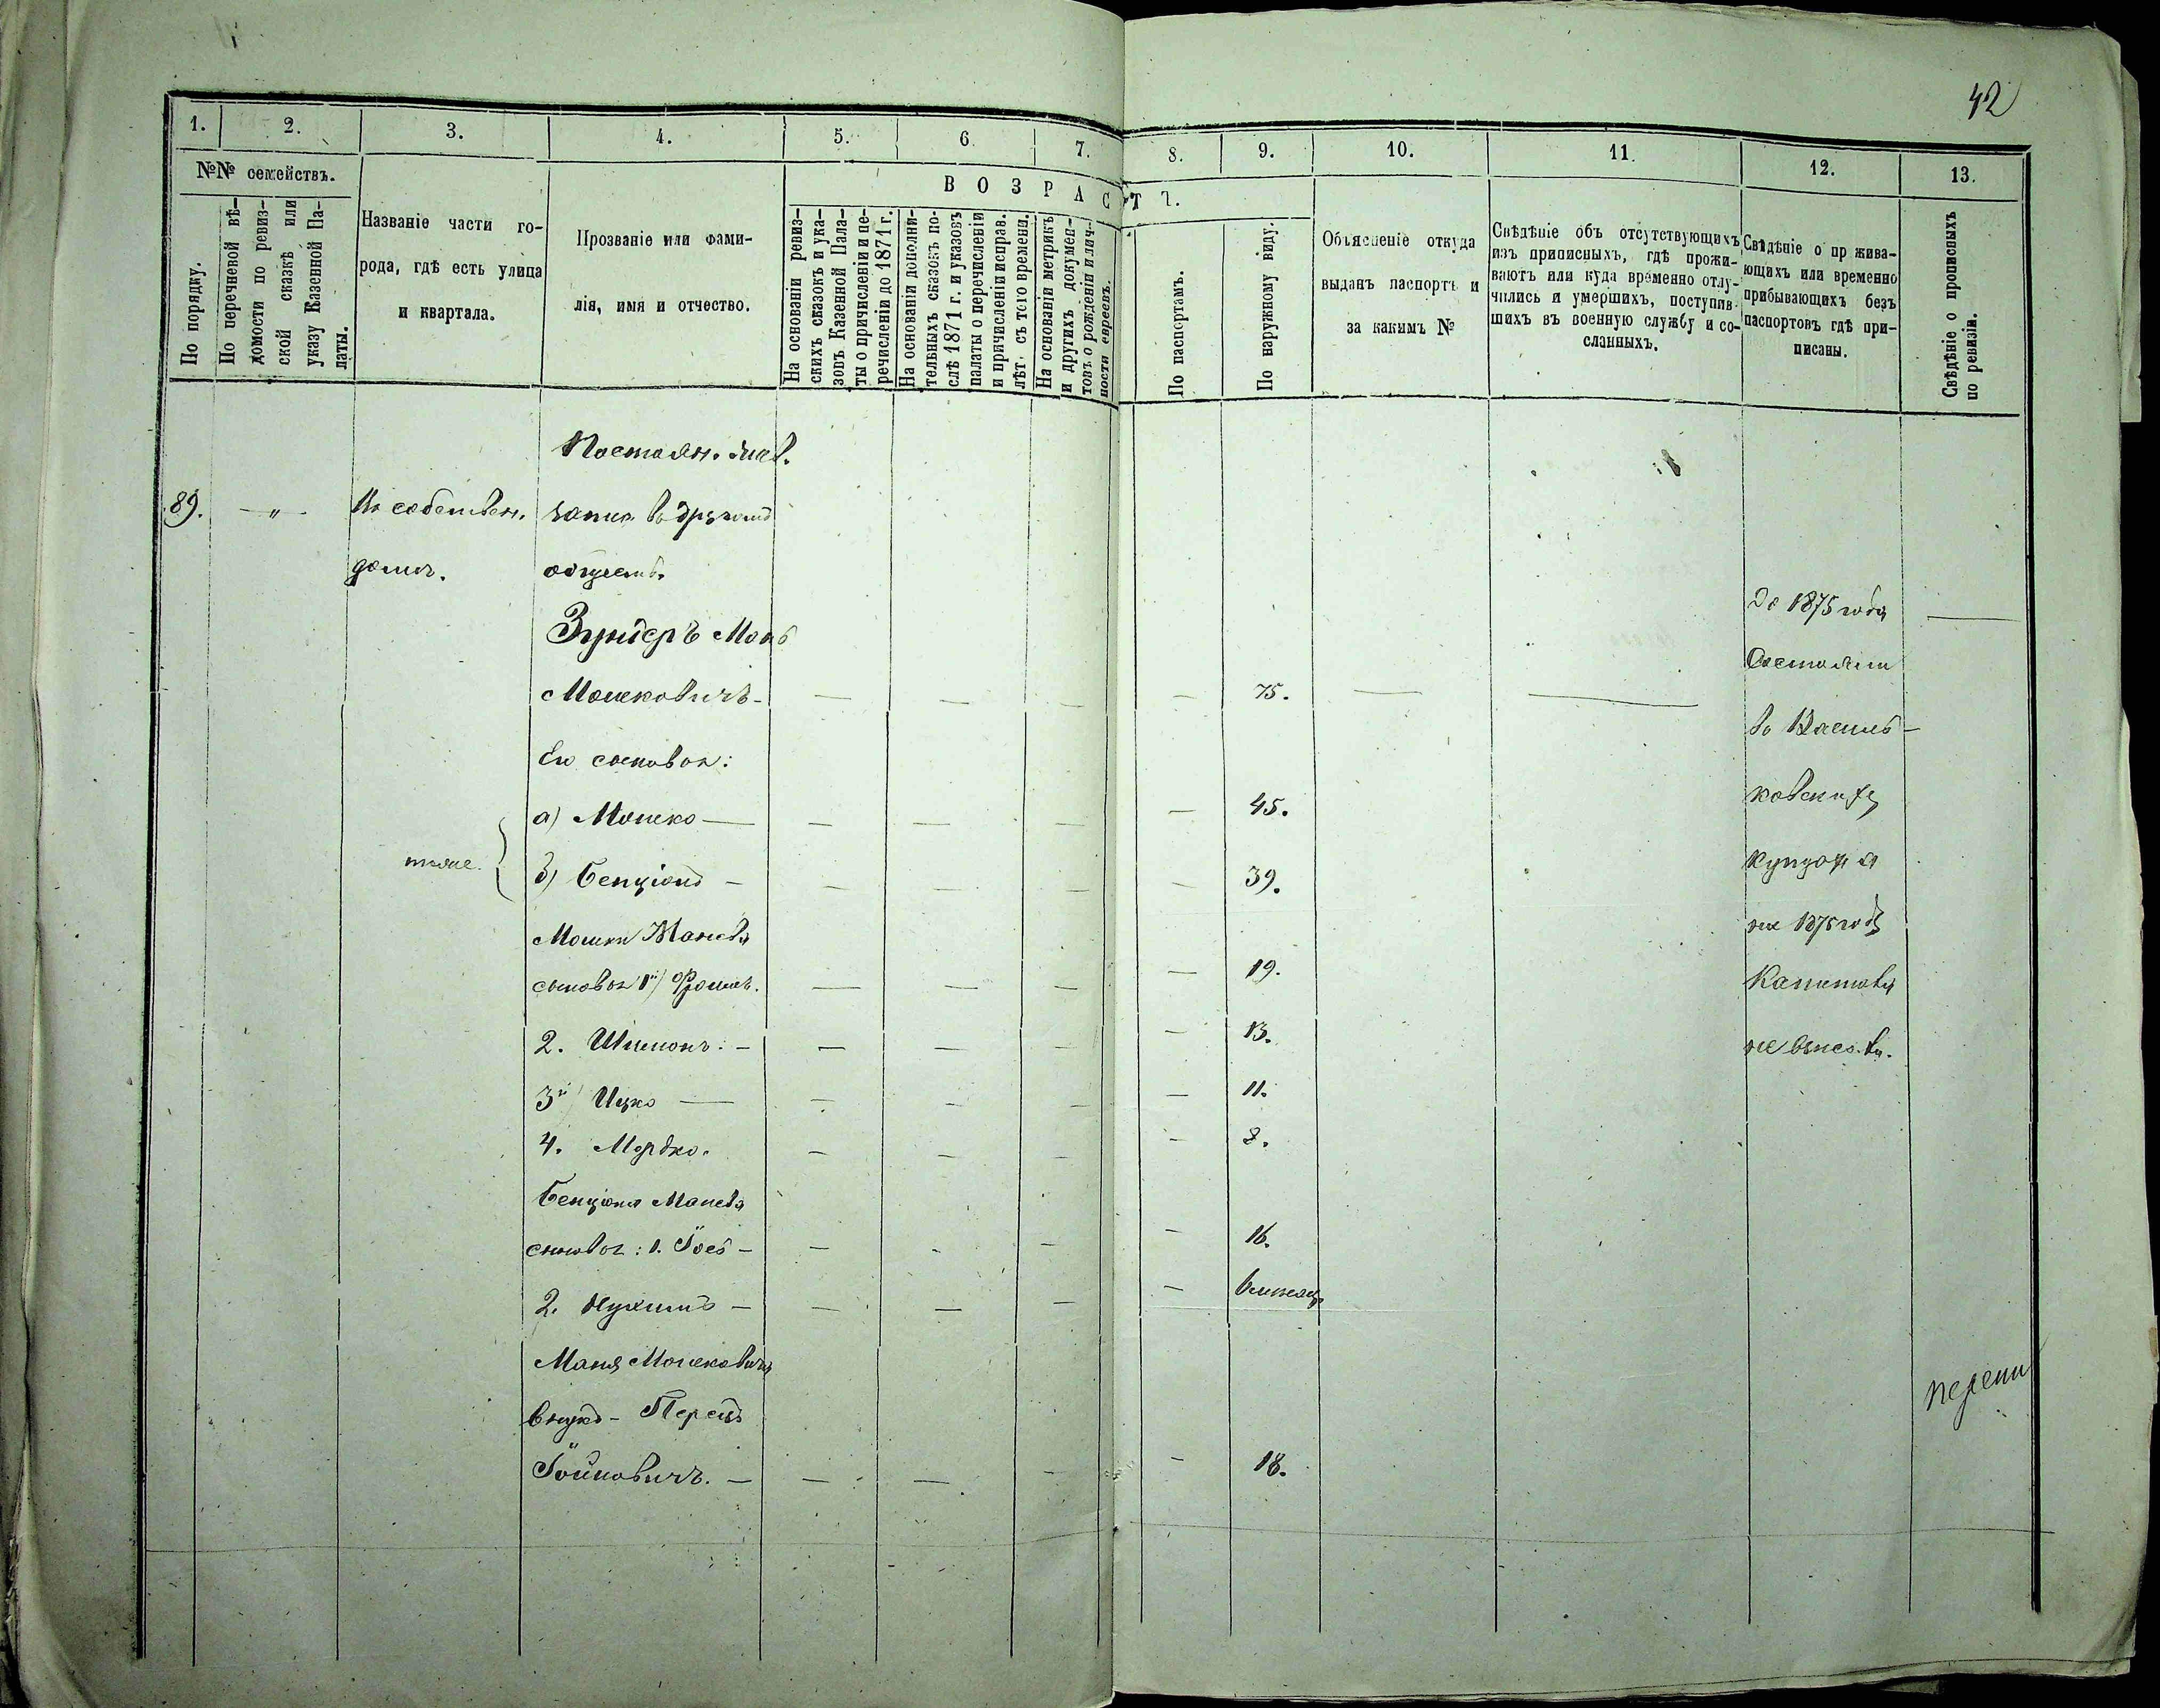 42
1. 2. 3. 4. 5. 6 7. 8. 9. 10. 11. 12. 13.
№№ семействъ.
По порядку.
По перечневой вѣ-
домости по ревиз-
ской сказкѣ или
указу Казенной Па-
латы.
Названіе части го-
рода, гдѣ есть улица
и квартала.
Прозваніе или фами-
лія, имя и отчество.
ВОЗРАСТЪ.
На основаніи ревиз-
скихъ сказокъ и ука-
зовъ Казенной Пала-
ты о причисленіи и пе-
речисленіи до 1871 г.
На основаніи дополни-
тельныхъ сказокъ по-
слѣ 1871 г. и указовъ
палаты о перечисленіи
и причисленіи исправ.
лѣт. съ того времени.
На основаніи метрикъ
и другихъ докумен-
товъ о рожденіи и лич-
ности евреевъ.
По паспортамъ.
По наружному виду.
Объясненіе откуда
выданъ паспортъ и
за какимъ №
Свѣдѣніе объ отсутствующихъ
изъ приписныхъ, гдѣ прожи-
ваютъ или куда временно отлу-
чились и умершихъ, поступив-
шихъ въ военную службу и со-
сланныхъ.
Свѣдѣніе о пр жива-
ющихъ или временно
прибывающихъ безъ
паспортовъ гдѣ при-
писаны.
Свѣдѣніе о прописныхъ
по ревизіи.
Постоян.
89. — " — въ собствен. въ другомъ
домѣ. обществ.
До 1875 года
Мошковичъ — — — — — 75. — —
Состояли
въ Василь-
Его сыновья:
ковскихъ
а) Мошко — — — — — 45.
тоже
купцахъ а
б) Бенціонъ — — — — — 39.
на 1875 годъ
Мошки Маневъ
сыновья 1й) — — — — 19.
Капитала
2. Шимонъ. — — — — — 13.
не внесли.
3й) Ицко — — — — — 11.
4. Мордко. — — — — 8.
Бенціона Манева
сыновья: 1. Іось — — — — — 16.
2. Нухимъ — — — — —
Маня Мошковича
внукъ - Перецъ
Іойновичъ. — — — — — 18.